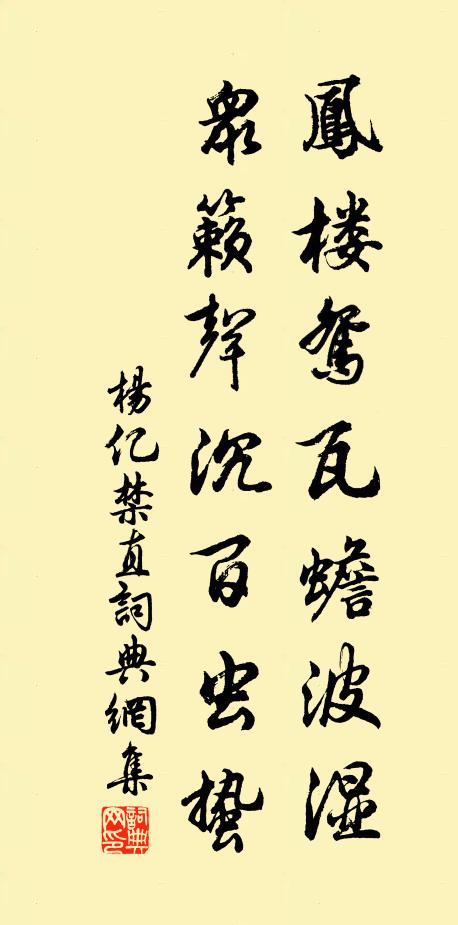 鳳楼鴛瓦蟾波湿
衆籟聲沉百虫蟄
楊億禁直詞典網集
詞典网印